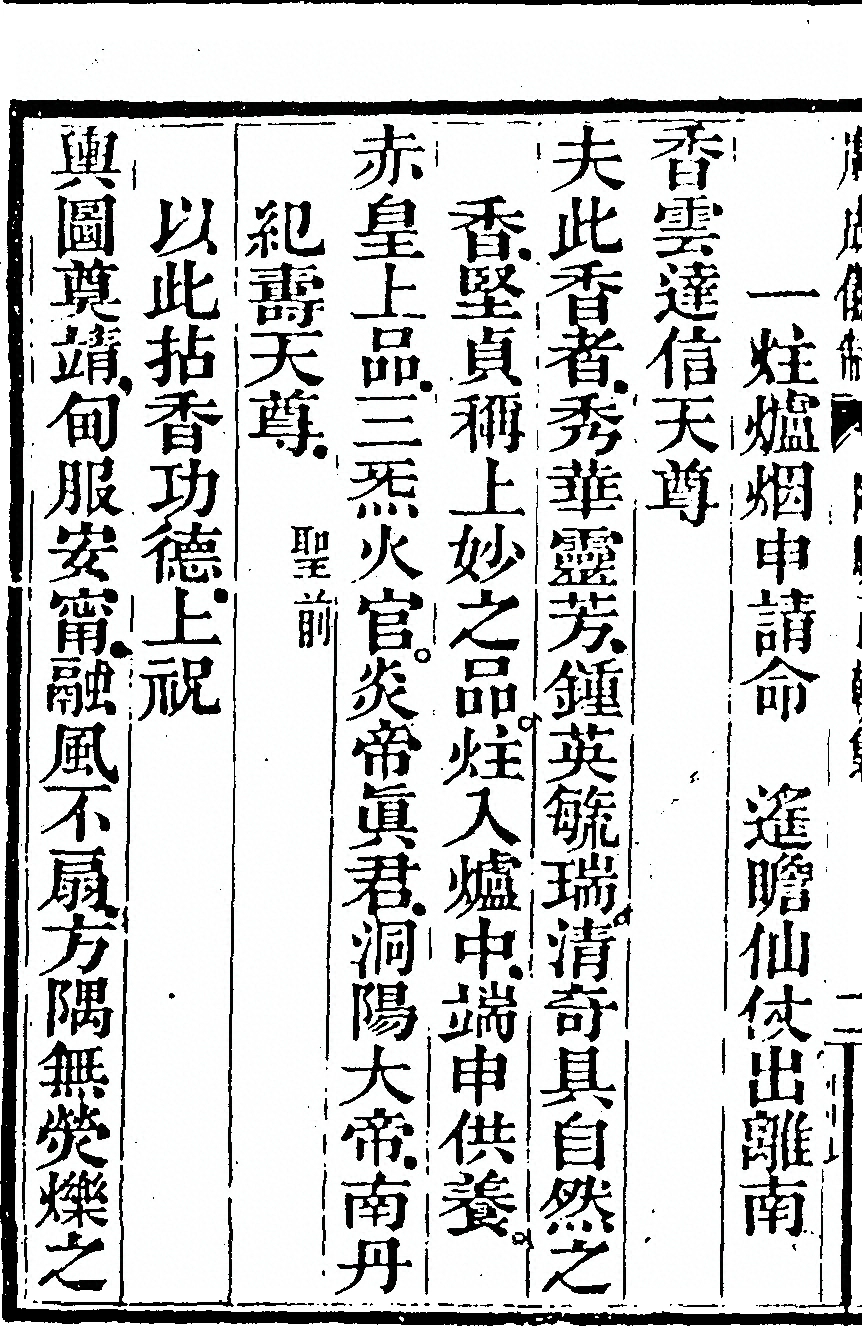 一炷爐烟申請命　遙瞻仙仗出離南
香雲達信天尊
夫此香者秀華靈芳鍾英毓瑞清奇具自然之
香堅貞稱上妙之品炷入爐中端申供養
赤皇上品三炁火官炎帝眞君洞陽大帝南丹
紀壽天尊　聖前
以此拈香功德上祝
輿圖奠靖甸服安甯融風不扇方隅無熒爍之